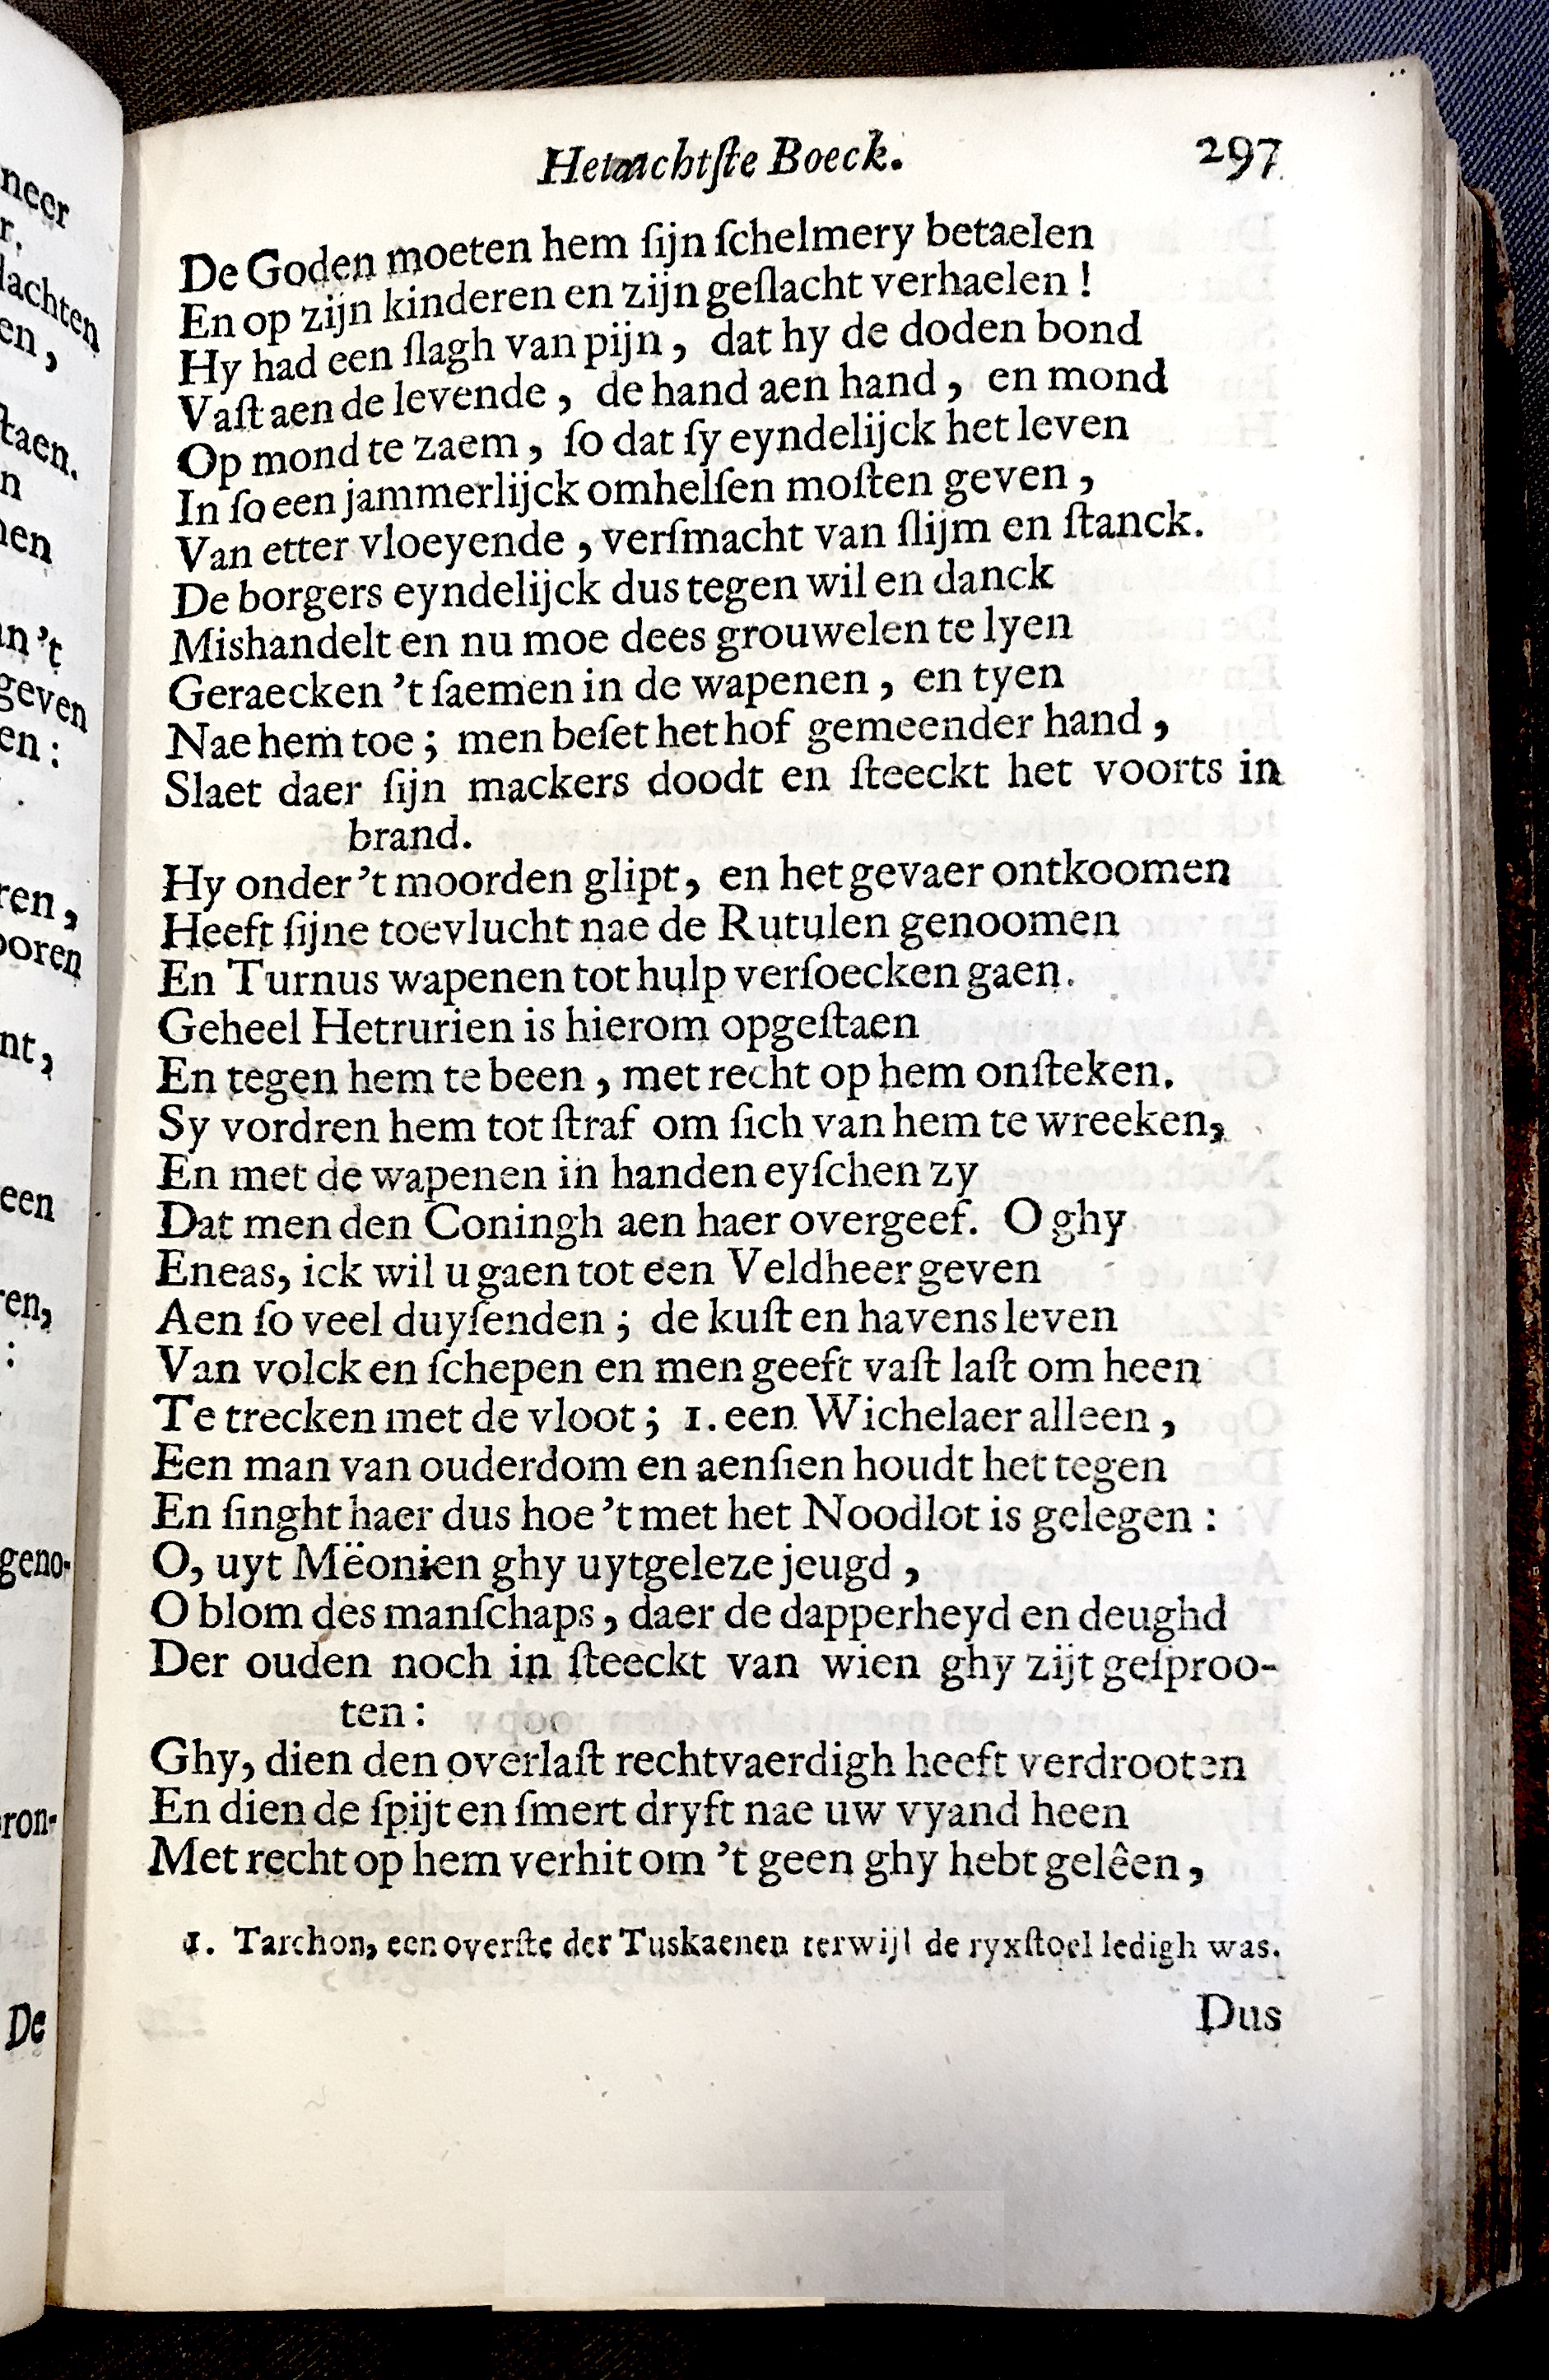 Het achtſte Boeck. 297
De Goden moeten hem ſijn ſchelmery betaelen
En op zijn kinderen en zijn geſlacht verhaelen!
Hy had een ſlagh van pijn, dat hy de doden bond
Vaſt aen de levende, de hand aen hand, en mond
Op mond te zaem, ſo dat ſy eyndelijck het leven
In ſo een jammerlijck omhelſen moſten geven,
Van etter vloeyende, verſmacht van ſlijm en ſtanck.
De borgers eyndelijck dus tegen wil en danck
Mishandelt en nu moe dees grouwelen te lyen
Geraecken 't ſaemen in de wapenen, en tyen
Nae hem toe; men beſet het hof gemeender hand,
Slaet daer ſijn mackers doodt en ſteeckt het voorts in
brand.
Hy onder 't moorden glipt, en het gevaer ontkoomen
Heeft ſijne toevlucht nae de Rutulen genoomen
En Turnus wapenen tot hulp verſoecken gaen.
Geheel Hetrurien is hierom opgeſtaen
En tegen hem te been, met recht op hem onſteken.
Sy vordren hem tot ſtraf om ſich van hem te wreeken,
En met de wapenen in handen eyſchen zy
Dat men den Coningh aen haer overgeef. O ghy
Eneas, ick wil u gaen tot een Veldheer geven
Aen ſo veel duyſenden; de kuſt en havens leven
Van volck en ſchepen en men geeft vaſt laſt om heen
Te trecken met de vloot; 1. een Wichelaer alleen,
Een man van ouderdom en aenſien houdt het tegen
En ſinght haer dus hoe 't met het Noodlot is gelegen:
O, uyt Mëonien ghy uytgeleze jeugd,
O blom des manſchaps, daer de dapperheyd en deughd
Der ouden noch in ſteeckt van wien ghy zijt geſproo-
ten:
Ghy, dien den overlaſt rechtvaerdigh heeft verdrooten
En dien de ſpijt en ſmert dryft nae uw vyand heen
Met recht op hem verhit om 't geen ghy hebt gelêen,
1. Tarchon, een overſte der Tuskaenen terwijl de ryxſtoel ledigh was.
Dus